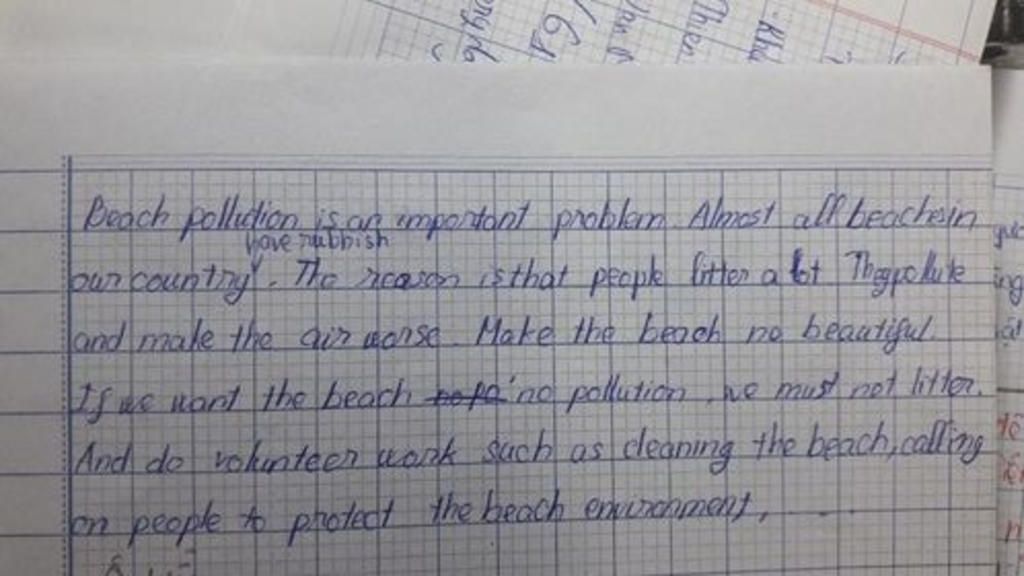 Beach pollution is an important problem. Almost all beaches in
have rubbish
our country. The reason is that people litter a lot They pollute
and make the air worse. Make the beach no beautiful.
If we want the beach no pollution, we must not litter.
And do volunteer work such as cleaning the beach, calling
on people to protect the beach environment, .....